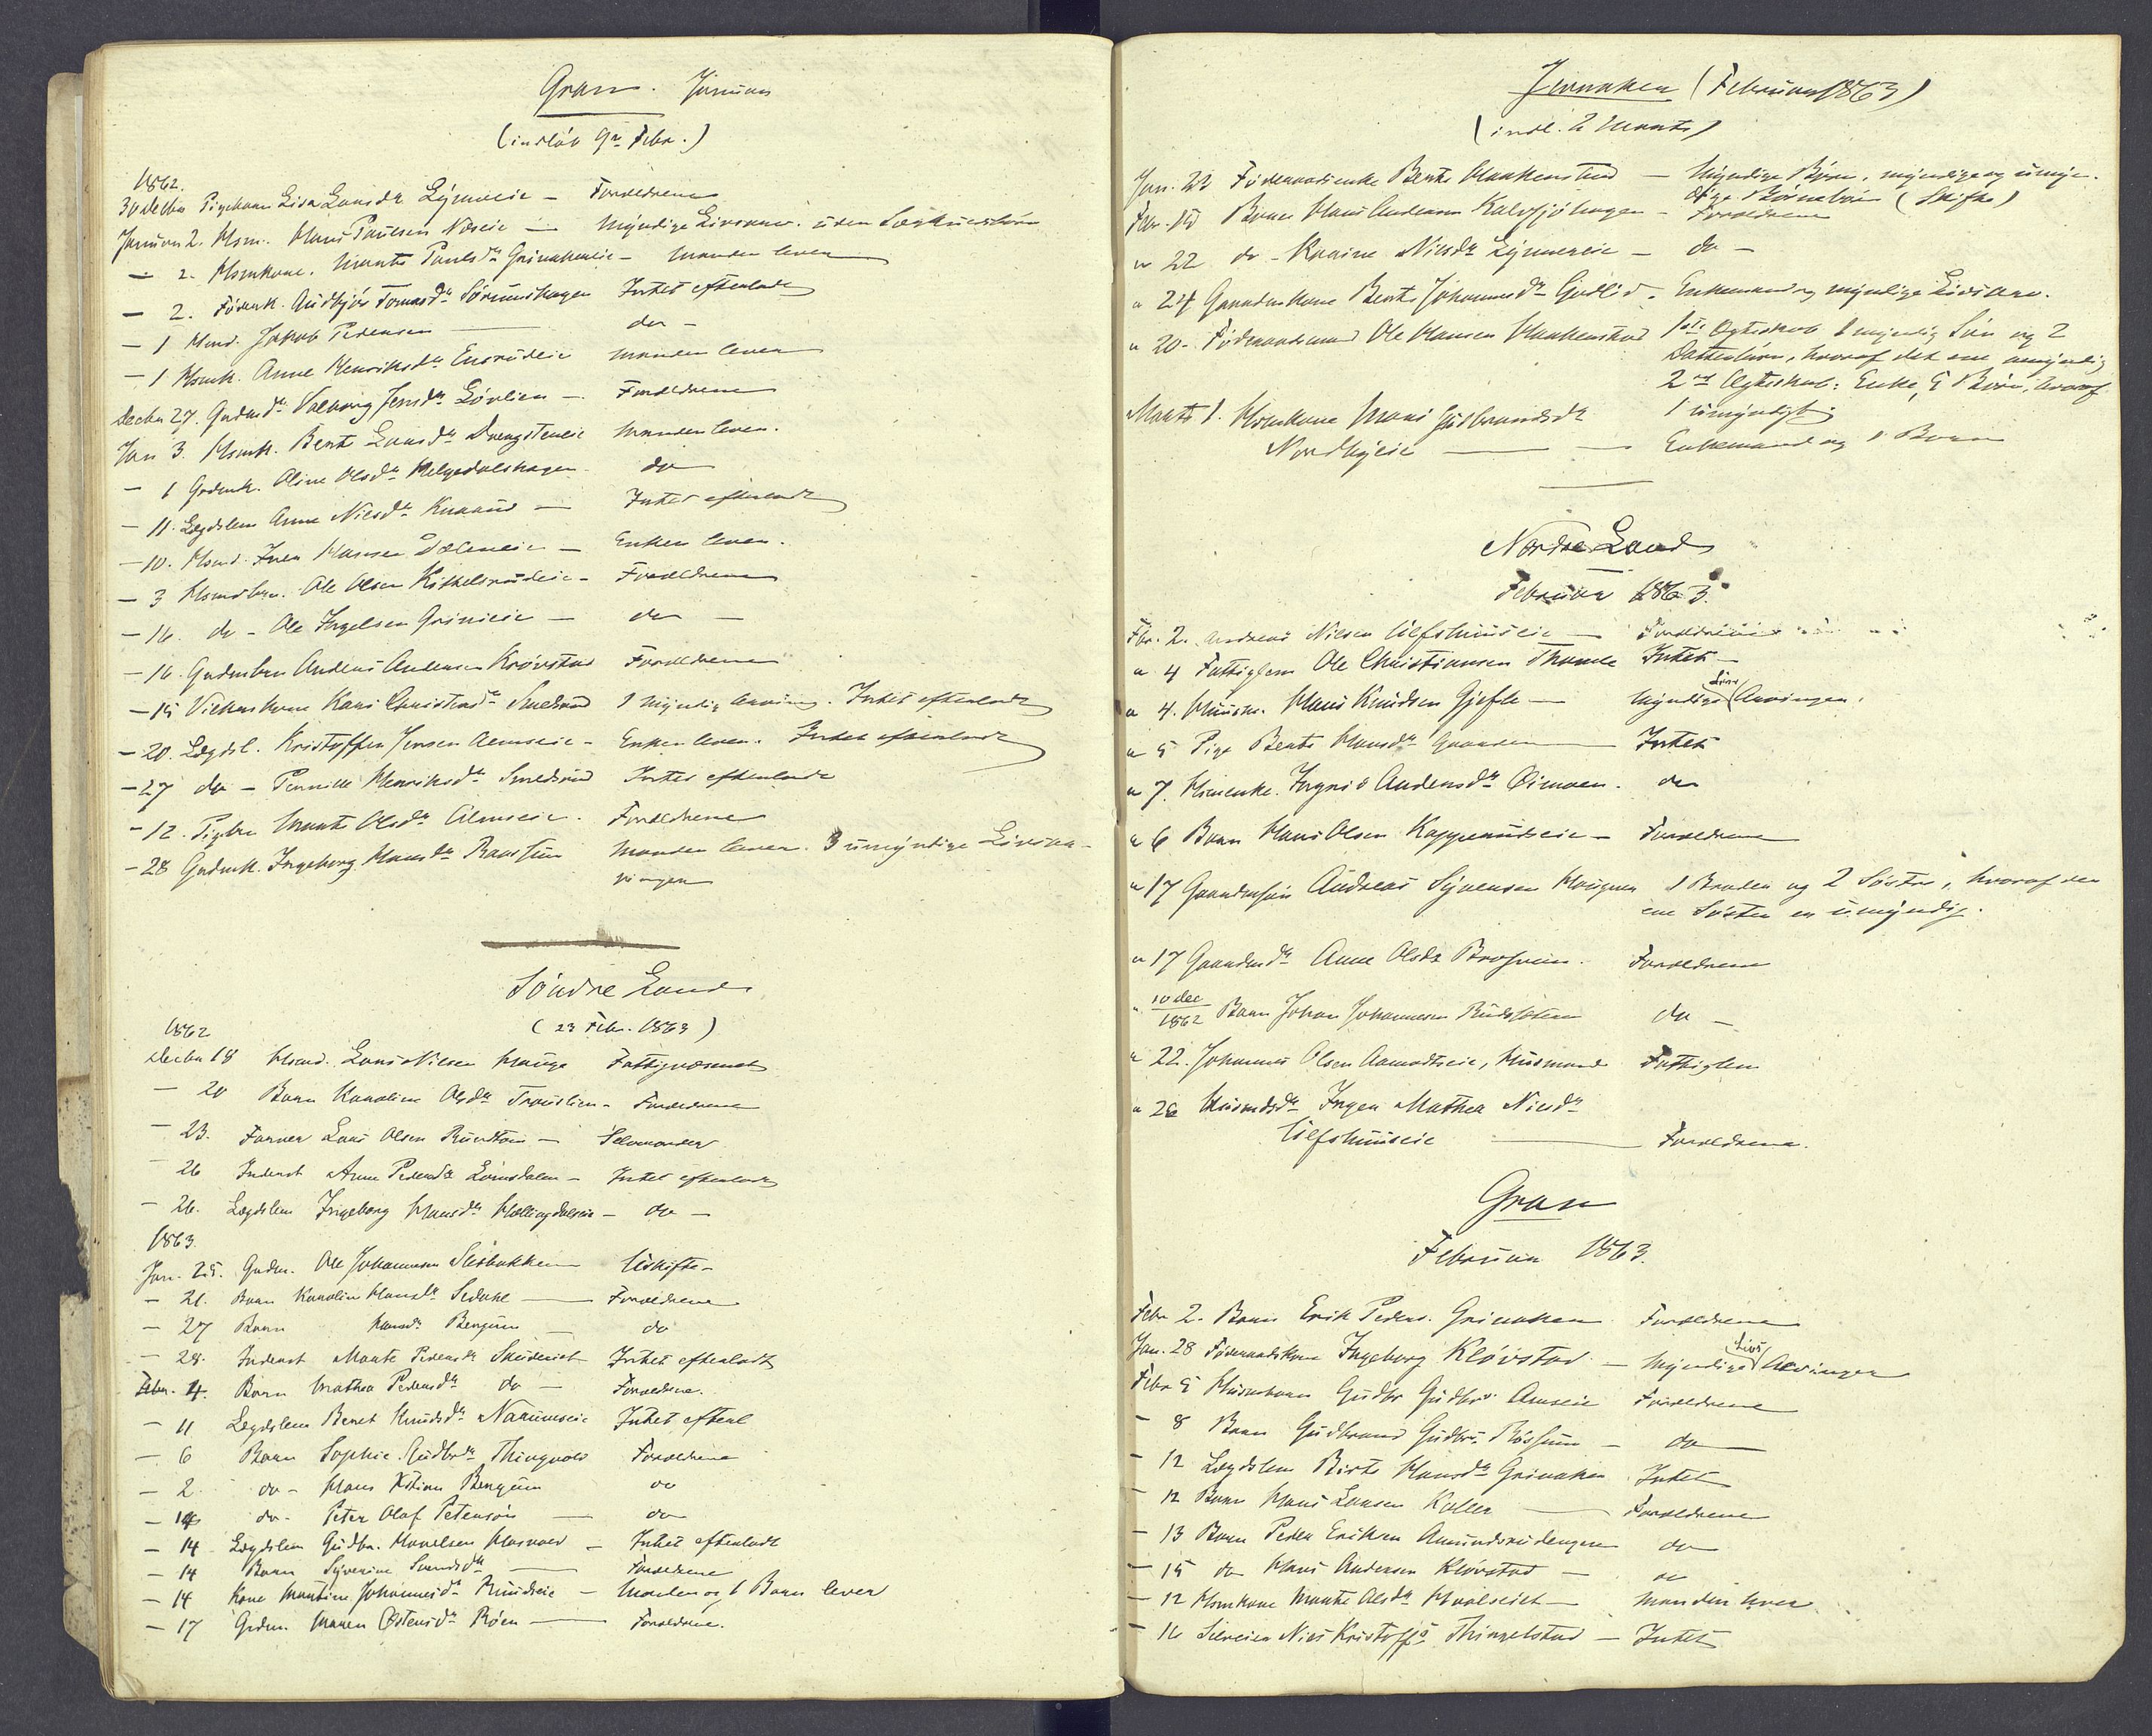 Gran. Januar
(indløb 9de Febr.)
1862.
30 Decbr Pigebarn Lisa Larsdr Lynneeie – Forældrene
Januar 2. Hsm. Hans Paulsen Næseie – Myndige Livsarv. uden
– 2. Hsmkone. Marte Paulsdr Grinakereie – Manden lever
– 2. Føderk. Audbjør Tomasdr Sørumshagen Intet efterladt
– 1 Hsmd. Jakob Pedersen — do –
– 1 Hsmk. Anne Henriksdr Ensrudeie Manden lever
Decbr 27. Gadmdr Valborg Jensdr Løvlien – Forældrene
Jan 3. Hsmk. Berte Larsdr Dvergsteneie Manden lever.
– 6 Gadmk. Oline Olsdr Helgedalshagen do
– 11. Lægdslem Anne Nielsdr Knarud – Intet efterladt
– 10. Hsmd. Iver Hansen Dæleneie – Enken lever.
– 3 Hsmdbrn. Ole Olsen Kittelsrudeie – Forældrene
– 16. do – Ole Ingelsen Grinieie – do –
– 16. Gadmbrn Anders Andersen Kløvstad Forældrene
– 15 Kari Christensdr Smedsrud 1 Myndig Arving. Intet efterladt
– 20. Lægdsl. Kristoffer Jensen Almseie – Enken lever. Intet efterladt
– 27 do – Pernille Henriksdr Smedsrud Intet efterladt
– 12. Pigebn Marte Olsdr Almseie. Forældrene
– 28 Gadmk. Ingeborg Hansdr Raassum Manden lever. 3 umyndige Livsar-
vinger
Søndre Land
(23 Febr. 1863)
1862
Decbr 18 Hsmd. Lars Nilsen Hauge Fattigvæsenet
– 20 Barn Karoline Olsdr Trøuslien – Forældrene
– 23. Farver Lars Olsen Rundtom – Selvmorder
– 26 Inderst Anne Pedersdr Lomsdalen – Intet efterladt
– 26. Lægdslem Ingeborg Hansdr Hallingdalseie – do –
1863
Jan. 25. Gadm. Ole Johannesen Skøbakken Uskifte –
– 21. Barn Karoline Hansdr Sedahl — Forældrene
– 27 Barn Hansdr Bergum – do
– 28. Inderst Marte Pedersdr Skuderiet Intet efterladt
Febr. 4. Barn Mathea Pedersdr do – Forældrene.
– 11 Lægdslem Beret Knudsdr Narumseie Intet efterl
– 6 Barn Sophie Gudbrdr Thingvold Forældrene
– 2 do – Hans Kstian Bergum do
– 14 do – Peter Olaf Petersøn — do
– 14 Lægdslem Gudbr. Haralsen Hasvold – Intet efterladt
– 14 Barn Syverine Svendsdr — Forældrene
– 14 Kone Martine Johannesdr Rundseie – Manden og 6 Børn lever
– 17 Gadm. Maren Østensdr Røen — Forældrene.
Jevnaker (Februar 1863)
(indl. 2 Marts)
Jan. 22 Føderaadsenke Berte Haakenstad — Myndige Børn, myndige og umyn-
dige Børnebørn (Skifte)
Febr. 15 Barn Hans Andersen Kalvsjøhagen – Forældrene
" 22 do – Karine Nielsdr Lynnereie – do –
" 24 Gaardmkone Berte Johannesdr Gudlid. Enkemand og myndige Livsarv.
" 20 – Føderaadsmand Ole Hansen Haakenstad 1ste Ægteskab 1 myndig Søn og 2
Datterbørn, hvoraf det ene umyndig
2det Ægteskab: Enke, 5 Børn, hvoraf
1 umyndigt
Marts 1. Hsmkone Mari Gudbrandsdr
Nordbyeie — Enkemand og 1 Barn
Nordre Land
Februar 1863.
Fbr. 2. Andreas Nilsen Ulfshuuseie – Forældrene
" 4 Fattiglem Ole Christiansen Thomle Intet –
" 4. Huusm. Hans Knudsen Gjefle — Myndige Livs Arvinger.
" 5 Pige Berte Hansdr — Intet
" 7. Hsmenke. Ingrid Andersdr Øimoen. do
" 6 Barn Hans Olsen Kopperudseie – Forældrene
" 17 Gaardmsøn Andreas Syversen Haugner 1 Broder og 2 Søstre, hvoraf den
ene Søster er umyndig.
" 17 Gaardmdr Anne Olsdr Brohaug. Forældrene
" 10 dec
1862 Barn Johan Johannesen Rudsloten do –
" 22. Johannes Olsen Aamodtseie, Husmand Fattiglem
" 26 Huusmdsdr Inger Mathea Nielsdr
Ulfshuuseie — Forældrene.
Gran
Februar 1863.
Febr 2. Barn Erik Peders. Grinaker Forældrene
Jan. 28 Føderaadskone Ingeborg Kløvstad. – Myndige Livs Arvinger
Febr 5 Huusmbarn Gudbr Gudbrs. Almseie Forældrene
– 8 Barn Gudbrand Gudbrs. Røssum – do
– 12 Lægdslem Birte Hansdr Grinaker Intet
– 12 Barn Hans Larsen Koller — Forældrene
– 13 Barn Peder Eriksen Amundsrudengen do
– 15 do Hans Andersen Kløvstad – do
– 12 Hsmkone Marte Olsdr Hvalseiet – Manden lever
– 16 Nils Kristoffs. Thingelstad – Intet